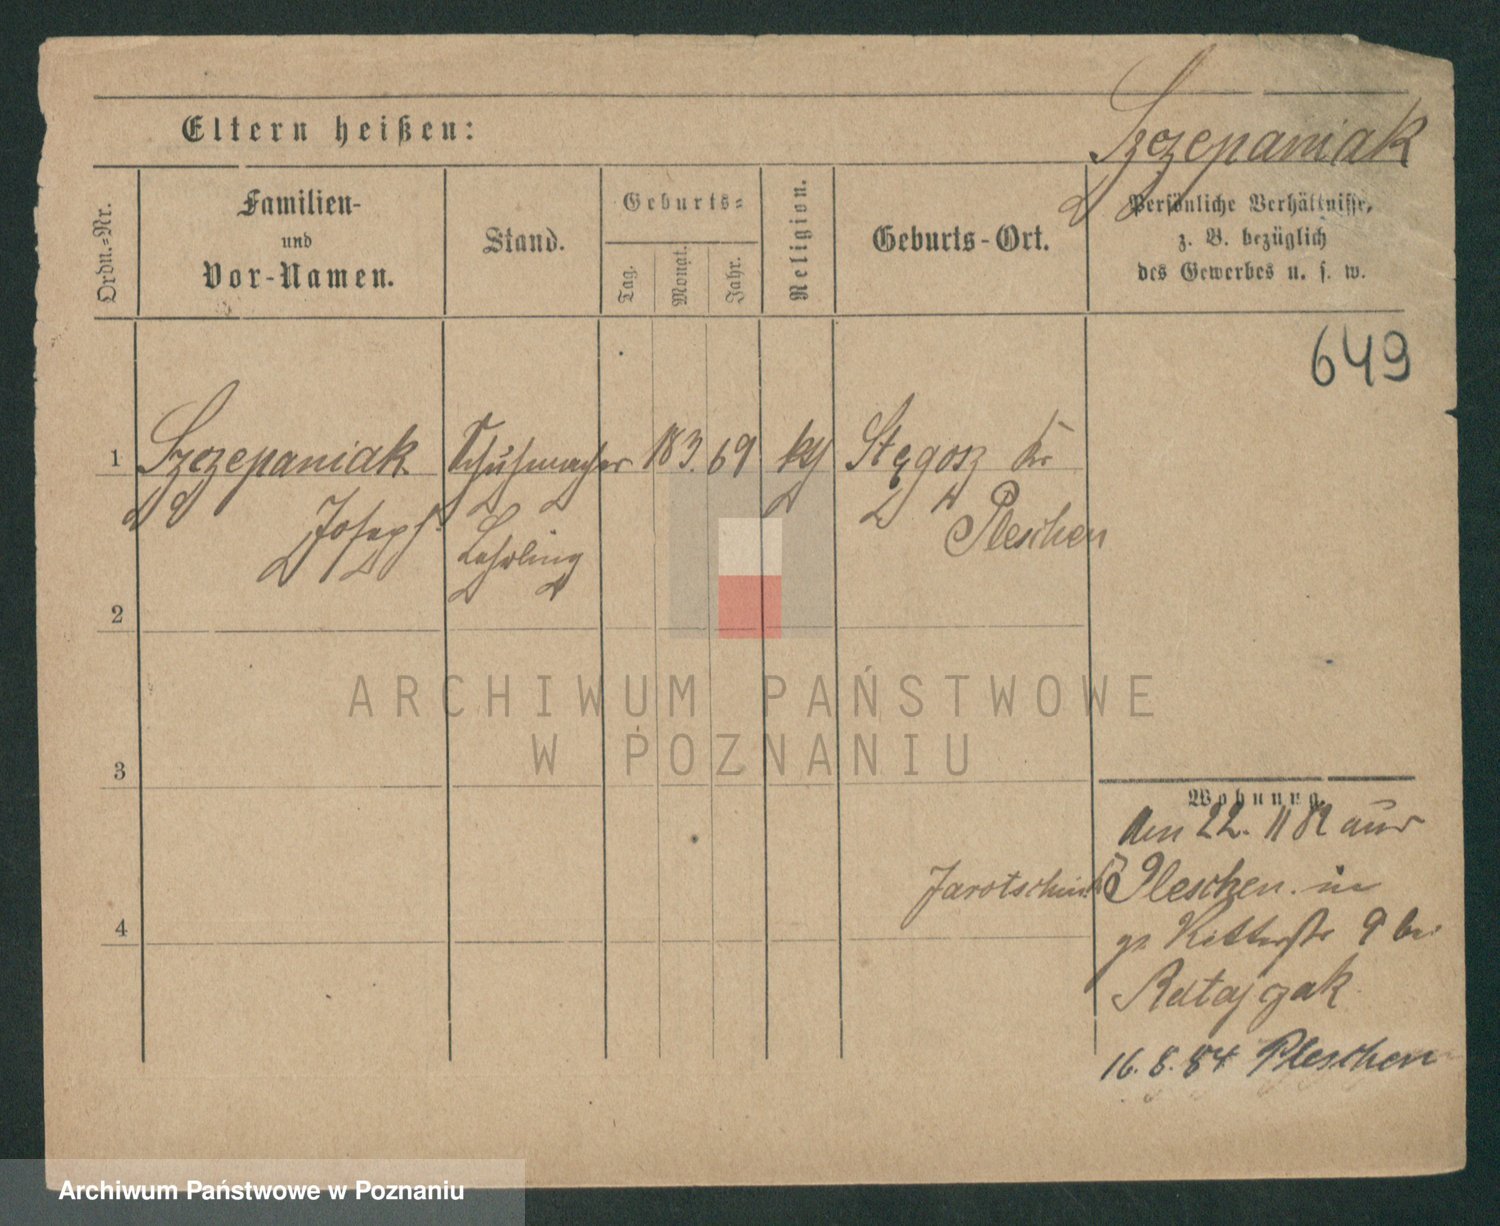 Eltern heißen:
Szczepaniak
Ordn.-Nr.
Familien-
und
Vor-Namen.
Stand.
Geburts-
Tag.
Monat.
Jahr.
Religion.
Geburts-Ort.
Persönliche Verhältnisse,
z. B. bezüglich
des Gewerbes u. s. w.
649
1 Szczepaniak Schuhmacher 18 3. 69 Stęgosz Kr
Joseph Lehrling Pleschen
2
3
Wohnung
den 22. 11 82 aus
Jarotschin Pleschen in
9 bei
4
Ratajczak
16. 8. 84 Pleschen
ARCHIWUM PAŃSTWOWE
W POZNANIU
Archiwum Państwowe w Poznaniu